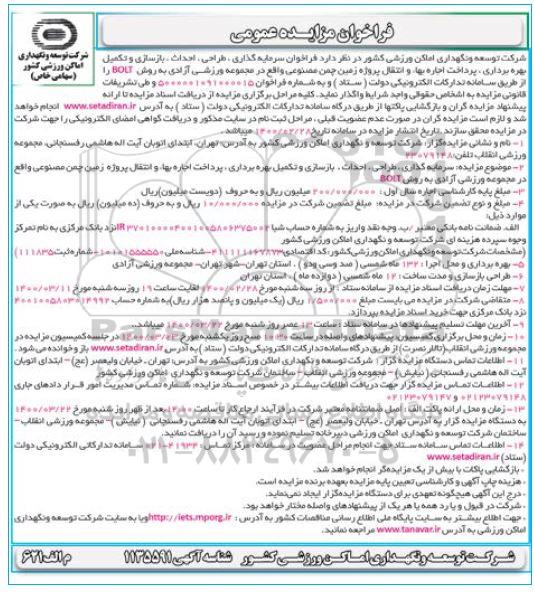 فراخوان مزایده عمومی
شرکت توسعه ونگهداری
اماکن ورزشی کشور
(سهامی خاص)
شرکت توسعه ونگهداری اماکن ورزشی کشور در نظر دارد فراخوان سرمایه گذاری ، طراحی ، احداث ، بازسازی و تکمیل
بهره برداری ، پرداخت اجاره بها، و انتقال پروژه زمین چمن مصنوعی واقع در مجموعه ورزشی آزادی به روش BOLT را
از طریق سامانه تدارکات الکترونیکی دولت ( ستاد ) و به شماره فراخوان و طی تشریفات
قانونی مزایده به اشخاص حقوقی واجد شرایط واگذار نماید. کلیه مراحل برگزاری مزایده از دریافت اسناد مزایده تا ارائه
پیشنهاد مزایده گران و بازگشایی پاکتها از طریق درگاه سامانه تدارکات الکترونیکی دولت ( ستاد ) به آدرس www.setadiran.ir انجام خواهد
شد و لازم است مزایده گران در صورت عدم عضویت قبلی ، مراحل ثبت نام در سایت مذکور و دریافت گواهی امضای الکترونیکی را جهت شرکت
در مزایده محقق سازند. تاریخ انتشار مزایده در سامانه تاریخ ۱۴۰۰/۰۲/۲۸ میباشد.
۱- نام و نشانی مزایده‌گزار: شرکت توسعه و نگهداری اماکن ورزشی کشور به آدرس: تهران، ابتدای اتوبان آیت اله هاشمی رفسنجانی، مجموعه
ورزشی انقلاب تلفن: ۲۳۰۷۹۱۴۸
۲- موضوع مزایده: سرمایه گذاری، طراحی ، احداث ، بازسازی و تکمیل بهره برداری ، پرداخت اجاره بها، و انتقال پروژه زمین چمن مصنوعی واقع
در مجموعه ورزشی آزادی به روش BOLT
۳- مبلغ پایه کارشناسی اجاره سال اول : ۲۰۰/۰۰۰/۰۰۰ میلیون ریال و به حروف (دویست میلیون)ریال
۴- مبلغ و نوع تضمین شرکت در مزایده: مبلغ تضمین شرکت در مزایده ۱۰/۰۰۰/۰۰۰ ریال و به حروف (ده میلیون) ریال به صورت یکی از
موارد ذیل:
الف. ضمانت نامه بانکی معتبر /ب. وجه نقد واریز به شماره حساب شبا نزد بانک مرکزی به نام تمرکز
وجوه سپرده هزینه ای شرکت توسعه و نگهداری اماکن ورزشی کشور
(مشخصات:شرکت توسعه ونگهداری اماکن ورزشی کشور: کد اقتصادی شناسه ملی شماره ثبت ۱۱۱۸۳۵)
۵- بهره برداری و محل اجرا : ۱۳۲ ماه شمسی ( صد و سی و دو) ، استان تهران- شهر تهران- مجموعه ورزشی آزادی
۶- طراحی بازسازی و مدت ساخت : ۱۲ ماه شمسی ( دوازده ماه ) ، استان تهران
۷- مهلت زمان دریافت اسناد مزایده از سامانه ستاد : از روز سه شنبه مورخ ۱۴۰۰/۰۲/۲۸ لغایت ساعت ۱۹ روز سه شنبه مورخ ۱۴۰۰/۰۳/۱۱
۸- متقاضی شرکت در مزایده می بایست مبلغ ۱/۵۰۰/۰۰۰ ریال (یک میلیون و پانصد هزار ریال) به شماره حساب
نزد بانک مرکزی جهت خرید اسناد مزایده بپردازد.
۹- آخرین مهلت تسلیم پیشنهادها در سامانه ستاد : ساعت ۱۳ عصر روز شنبه مورخ ۱۴۰۰/۰۳/۲۲ میباشد.
۱۰- زمان و محل برگزاری کمیسیون: پیشنهادهای واصله در ساعت ۱۰:۳۰ صبح روز یکشنبه مورخ ۱۴۰۰/۰۳/۲۳ در جلسه کمیسیون مزایده در
مجموعه ورزشی انقلاب (تالار نصرت) از طریق درگاه سامانه تدارکات الکترونیکی دولت ( ستاد ) به آدرس www.setadiran.ir باز و خوانده می شود.
۱۱- اطلاعات تماس دستگاه مزایده گزار : شرکت توسعه و نگهداری اماکن ورزشی کشور به آدرس: تهران ، خیابان ولیعصر (عج) - ابتدای اتوبان
آیت اله هاشمی رفسنجانی (نیایش) - مجموعه ورزشی انقلاب - ساختمان شرکت توسعه و نگهداری اماکن ورزشی کشور
۱۲- اطلاعات تماس مزایده گزار جهت دریافت اطلاعات بیشتر در خصوص اسناد مزایده، شماره تماس مدیریت امور قرار دادهای جاری
۰۲۱۲۳۰۷۹۱۴۸ و ۰۲۱۲۳۰۷۹۱۴۷
۱۳- زمان و محل ارائه پاکت الف : اصل ضمانتنامه معتبر شرکت در فرآیند ارجاع کار تا ساعت ۱۲:۰۰ بعد از ظهر روز شنبه مورخ ۱۴۰۰/۰۳/۲۲
به دستگاه مزایده گزار به آدرس تهران ـ خیابان ولیعصر (عج) - ابتدای اتوبان آیت اله هاشمی رفسنجانی ( نیایش) - مجموعه ورزشی انقلاب -
ساختمان شرکت توسعه و نگهداری اماکن ورزشی دبیرخانه تسلیم نموده و رسید آن را دریافت نمایند.
۱۴- اطلاعات تماس سامانه ستاد جهت انجام مراحل عضویت در سامانه : مرکز تماس : ۰۲۱-۴۱۹۳۴ سامانه تدارکاتی الکترونیکی دولت
(ستاد) www.setadiran.ir
- بازگشایی پاکات با بیش از یک مزایده‌گر انجام خواهد شد.
- هزینه چاپ آگهی و کارشناسی تعیین پایه مزایده بعهده برنده مزایده است.
- درج این آگهی هیچگونه تعهدی برای دستگاه مزایده‌گزار ایجاد نمی‌نماید.
- شرکت در قبول و یا رد همه یا هر یک از پیشنهادهای واصله مختار خواهد بود.
- جهت اطلاع بیشتر به سایت پایگاه ملی اطلاع رسانی مناقصات کشور به آدرس : http://iets.mporg.ir ویا به سایت شرکت توسعه ونگهداری
اماکن ورزشی به آدرس www.tanavar.ir مراجعه نمایید.
شرکت توسعه ونگهداری اماکن ورزشی کشور شناسه آگهی ۱۱۳۵۵۹۱ م الف ۶۲۱